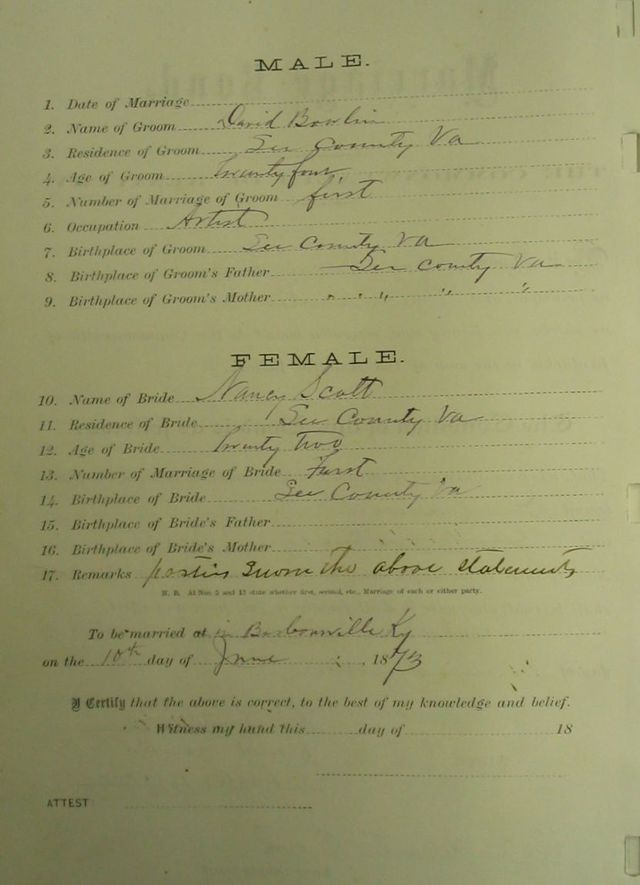 MALE.
1. Date of Marriage
2. Name of Groom David Bowlin
3. Residence of Groom Lee County Va
4. Age of Groom twenty four
5. Number of Marriage of Groom first
6. Occupation Artist
7. Birthplace of Groom Lee County Va
8. Birthplace of Groom's Father Lee County Va
9. Birthplace of Groom's Mother " " " "
FEMALE.
10. Name of Bride Nancy Scott
11. Residence of Bride Lee County Va
12. Age of Bride Twenty two
13. Number of Marriage of Bride First
14. Birthplace of Bride Lee County Va
15. Birthplace of Bride's Father
16. Birthplace of Bride's Mother
17. Remarks parties sworn the above statements
N. B. At Nos. 5 and 13 state whether first, second, etc., Marriage of each or either party.
To be married at in Barbourville Ky
on the 10th day of June , 1873
I Certify that the above is correct, to the best of my knowledge and belief.
Witness my hand this day of 18
ATTEST